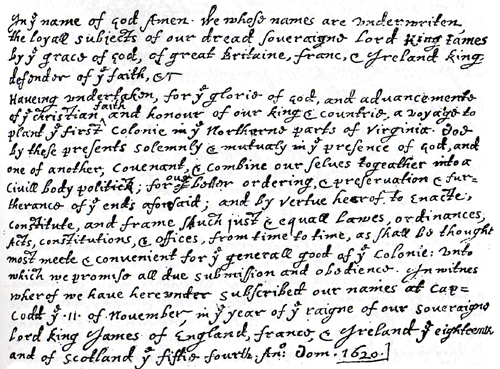 In yͤ name of God Amen. We whose names are underwriten,
the loyall subjects of our dread soveraigne Lord King James
by yͤ grace of God, of great Britaine, franc, & Ireland king,
defender of yͤ faith, &c
Haveing undertaken, for yͤ glorie of God, and advancemente
of yͤ christian faith and honour of our king & countrie, a voyage to
plant yͤ first colonie in yͤ Northerne parts of Virginia. Doe
by these presents solemnly & mutualy in yͤ presence of God, and
one of another, covenant, & combine our selves togeather into a
Civill body politick; for our better ordering, & preservation & fur-
therance of yͤ ends aforesaid; and by vertue hearof to enacte,
constitute, and frame shuch just & equall Lawes, ordinances,
Acts, constitutions, & offices, from time to time, as shall be thought
most meete & convenient for yͤ generall good of yͤ Colonie: unto
which we promise all due submission and obedience. In witnes
wherof we have hereunder subscribed our names at Cap-
Codd yͤ .11. of November, in yͤ year of yͤ raigne of our soveraigne
Lord king James of England, france, & Ireland yͤ eighteenth
and of Scotland yͤ fiftie fourth. Anº: Dom. 1620.]